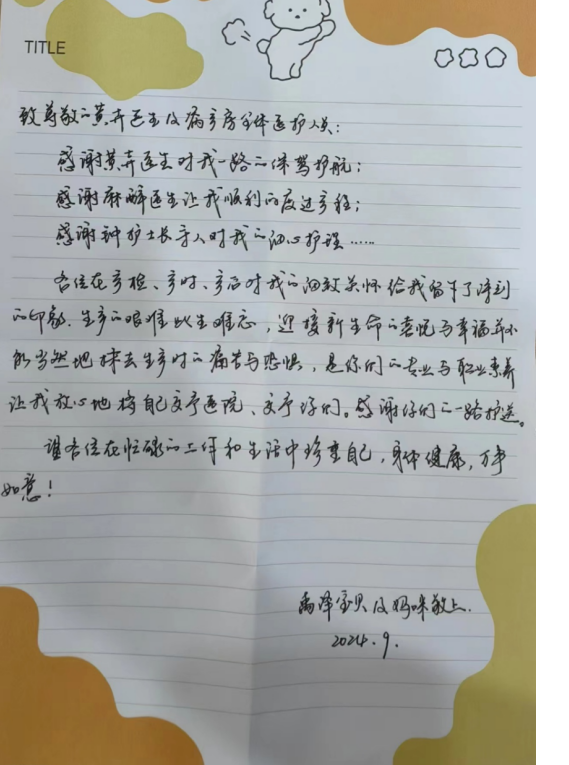 TITLE
致尊敬的黄卉医生及病产房全体医护人员：
感谢黄卉医生对我一路的保驾护航；
感谢麻醉医生让我顺利的度过产程；
感谢钟护士长等人对我的细心护理……
各位在产检、产时、产后对我的细致关怀给我留下了深刻
的印象。生产的艰难此生难忘，迎接新生命的喜悦与幸福并不
能当然地抹去生产时的痛苦与恐惧，是你们的专业与职业素养
让我放心地将自己交予医院、交予你们。感谢你们的一路护送。
望各位在忙碌的工作和生活中珍重自己，身体健康，万事
如意！
禹泽宝贝及妈咪敬上.
2024.9.